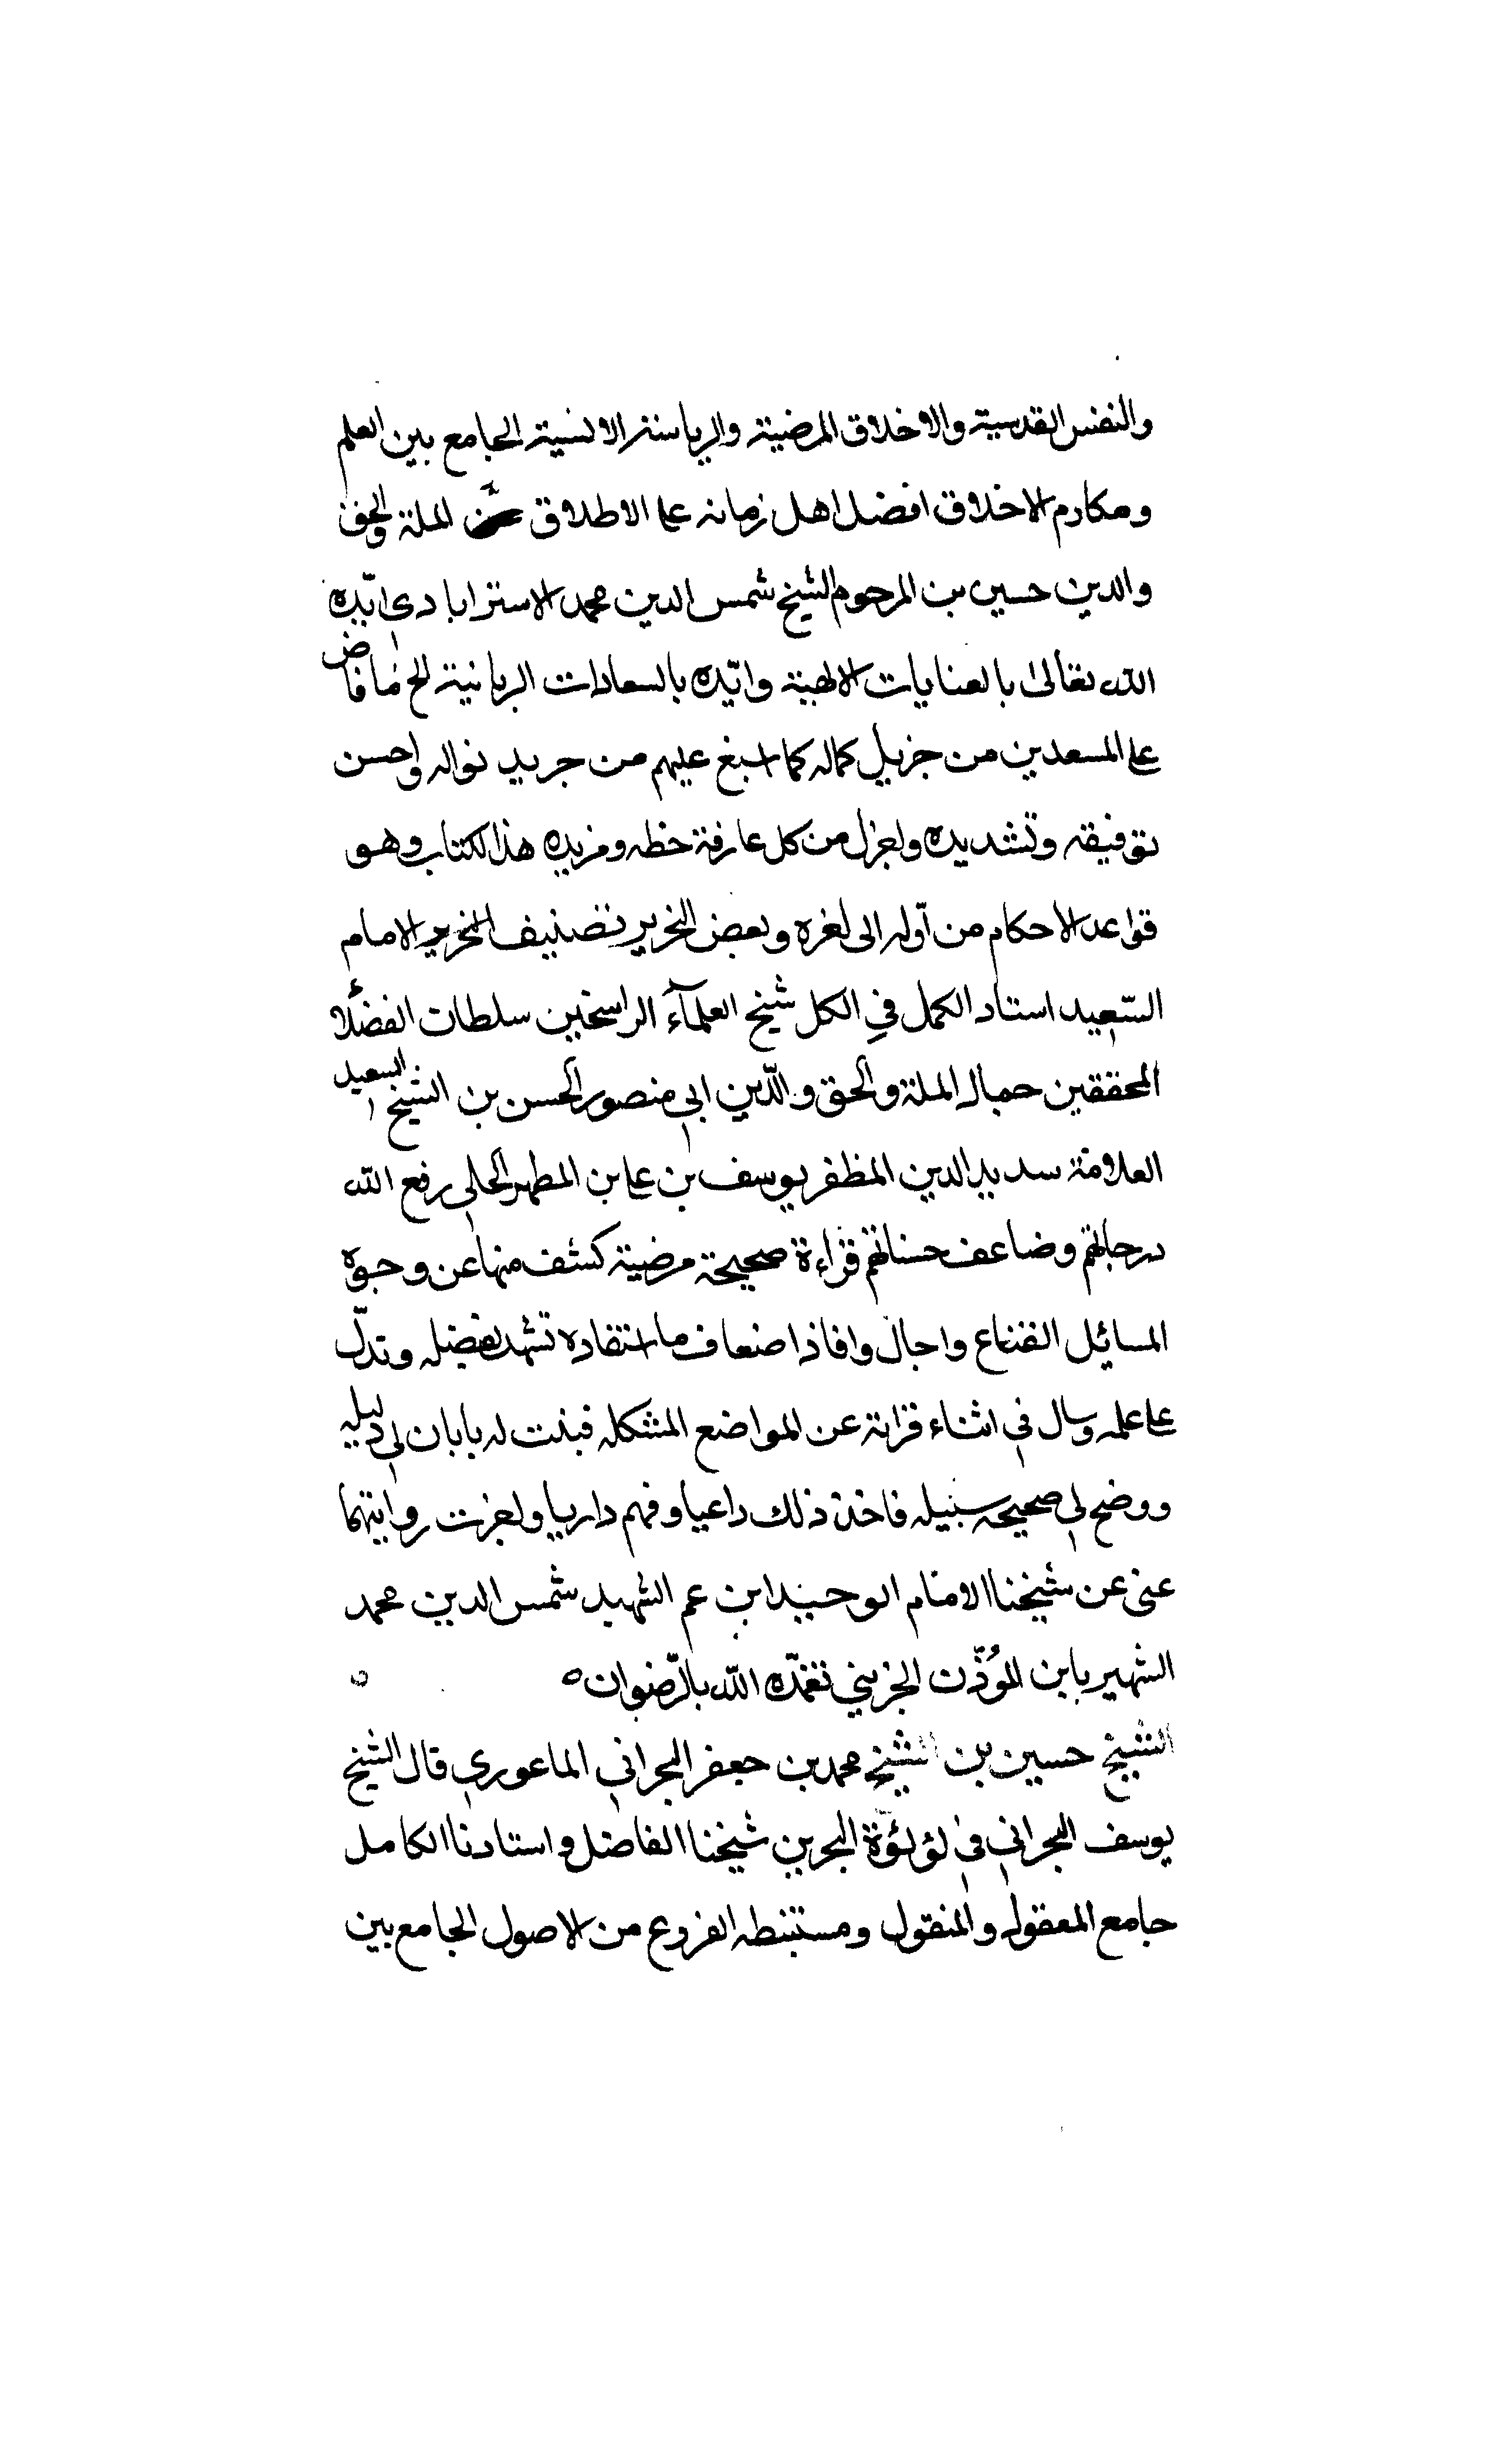 والنفس القدسية والاخلاق المرضية والرياسة الانسية الجامع بين العلم
ومكارم الاخلاق افضل اهل زمانه على الاطلاق الملة والحق
والدين حسين بن المرحوم الشيخ شمس الدين محمد الاسترابادى ايّده
اللّه تعالى بالعنايات الالهية وايّده بالسعادات الربانية افاض
على المسعدين من جزيل كماله كما اسبغ عليهم من جريد نواله واحسن
توفيقه وتشديده واجزل من كل عارفة حظه ومزيده هذا الكتاب وهو
قواعد الاحكام من اوله الى اخره وبعض التحرير تصنيف النحرير الامام
السّعيد استاد الكمل في الكل شيخ العلمآء الراسخين سلطان الفضلاء
المحققين جمال الملة والحق والدّين ابي منصور الحسن بن الشيخ السعيد
العلامة سديد الدين المظفر يوسف بن على بن المطهر الحلي رفع الله
درجاتهم وضاعف حسناتهم قراءة صحيحة مرضية كشف منها عن وجوه
المسائل القناع واجال وافاد اضعاف ما استفاده تشهد بفضيله وتدلّ
على علمه وسال في اثناء قراته عن المواضع المشكله فبينت له بابان لي دليله
ووضح لي صحيحه سبيله فاخذ ذلك داعيا وفهم داريا واجزت روايتهما
عنى عن شيخنا الامام الوحيد ابن عم الشهيد شمس الدين محمد
الشهير بابن المُؤذّن الجزيني تغمّده اللّه بالرّضوان ٥
الشيخ حسين بن الشيخ محمد بن جعفر البحراني الماحوري قال الشيخ
يوسف البحراني في لؤلؤة البحرين شيخنا الفاضل واستادنا الكامل
جامع المعقول والمنقول ومستنبطه الفروع من الاصول الجامع بين